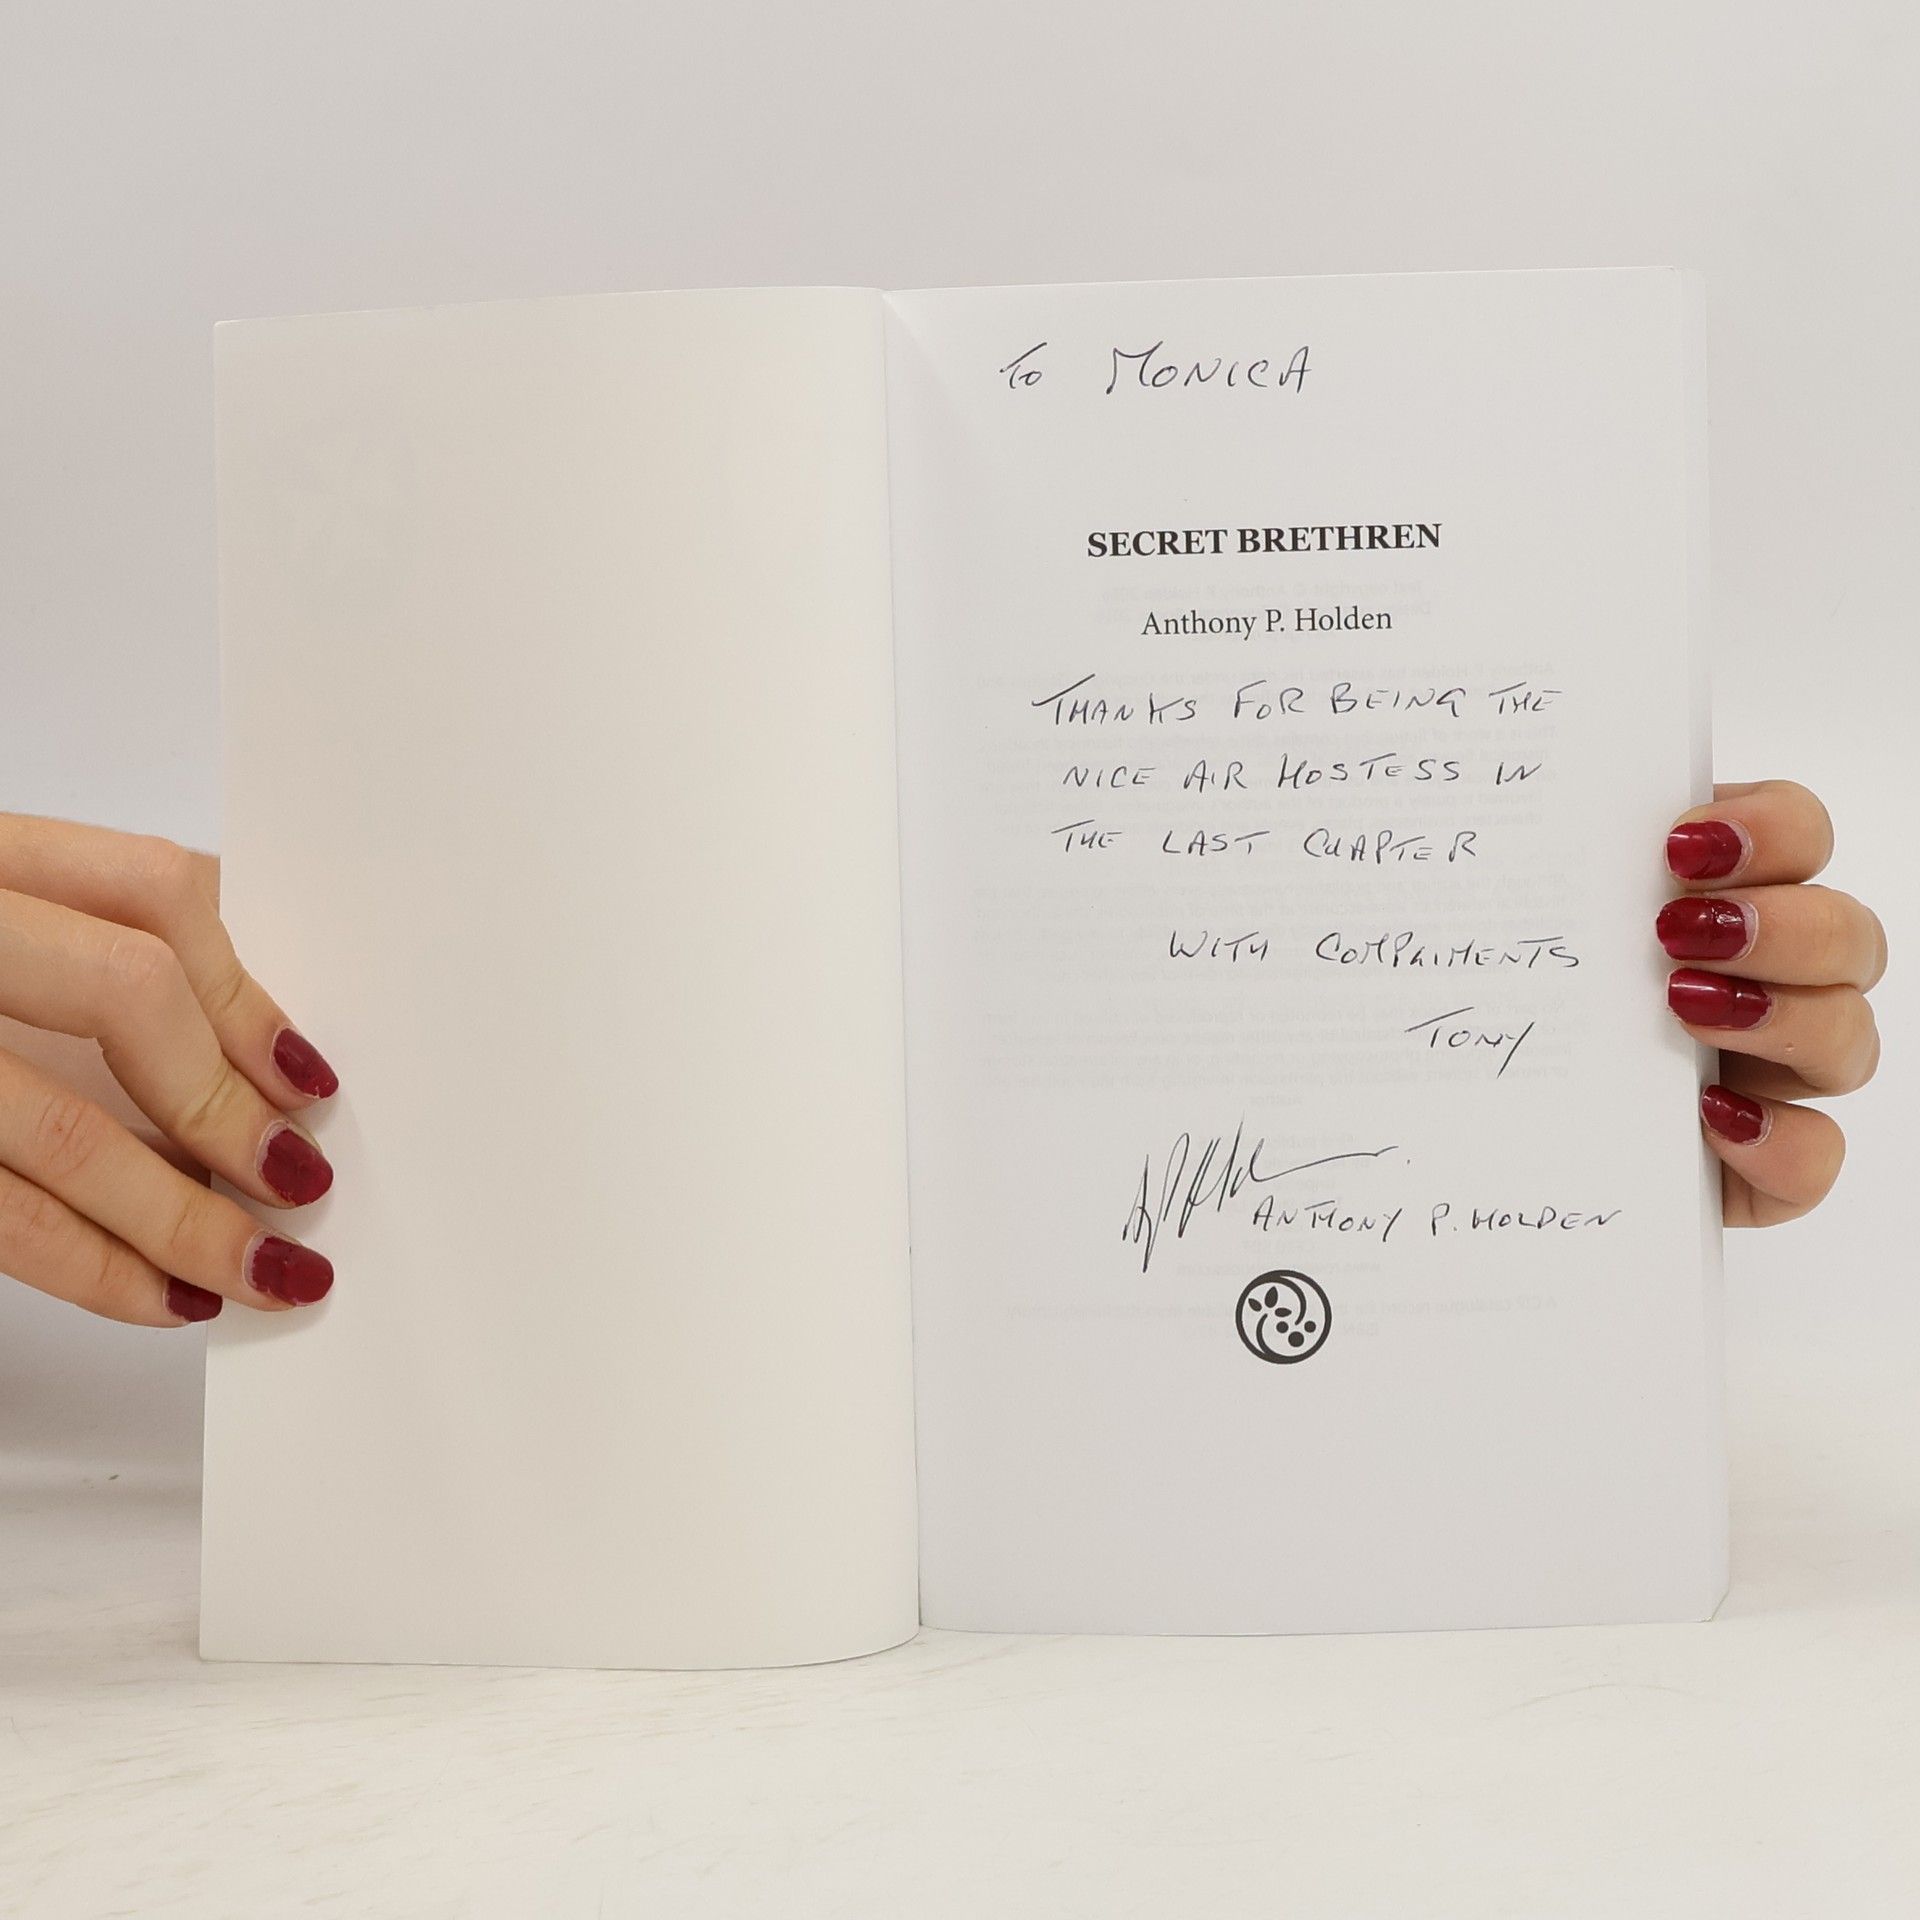 To MONICA
SECRET BRETHREN
Anthony P. Holden
THANKS FOR BEING THE
NICE AIR HOSTESS IN
THE LAST CHAPTER
WITH COMPLIMENTS
TONY
ANTHONY P. HOLDEN